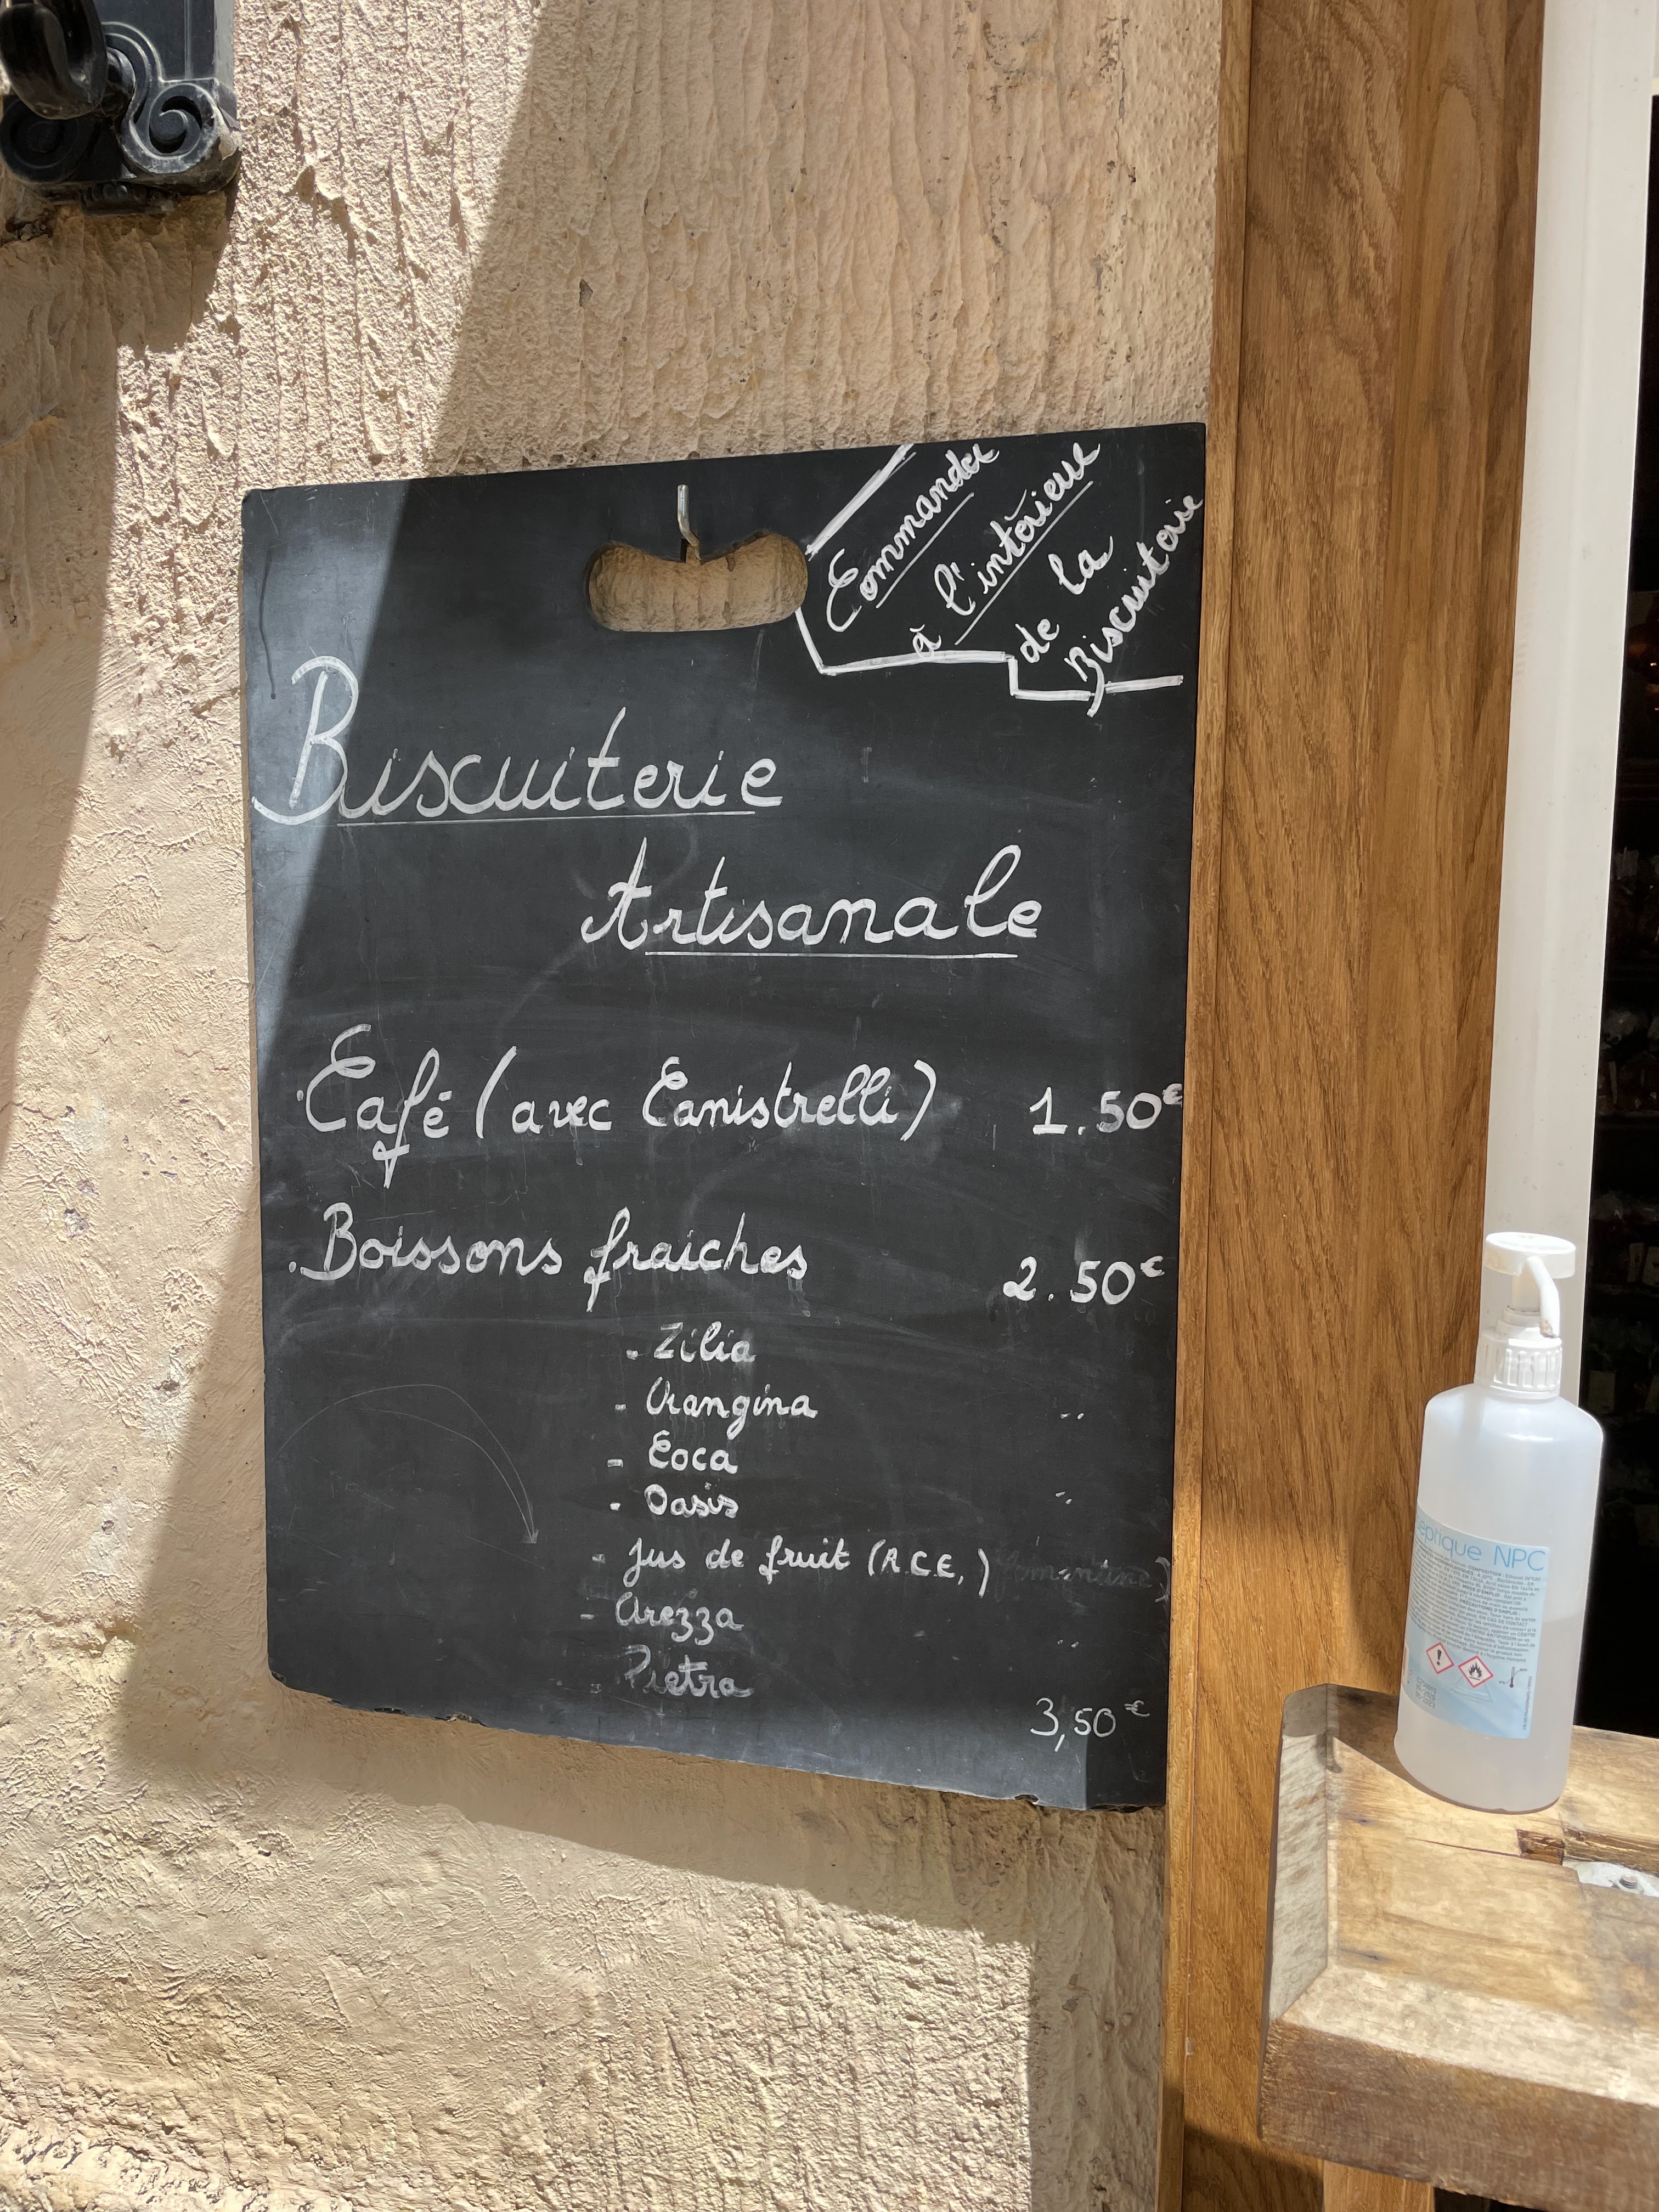 Commander
à l'intérieur
de la
Biscuiterie
Biscuiterie
Artisanale
. Café (avec Canistrelli) 1.50€
. Boissons fraiches 2.50€
- Zilia
- Orangina "
- Coca
- Oasis "
- Jus de fruit (A.C.E.)
- Arezza "
Pietra
3,50€
septique NPC